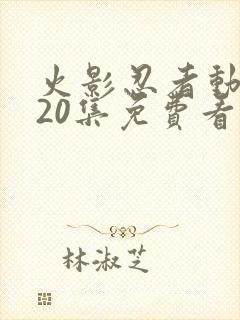 火影忍者動
20集免費看
林淑芝